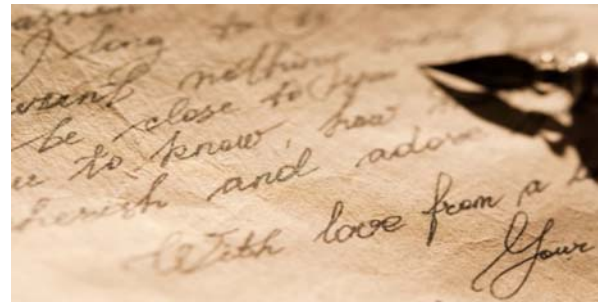 I long to
want nothing
be close to you
to know, how
cherish and adore
With love from a
Your